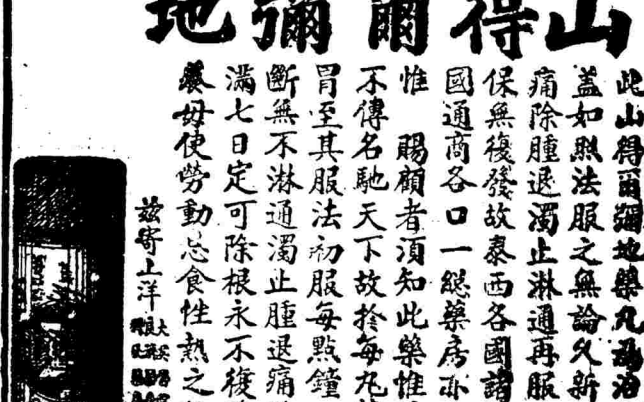 山得爾彌地
此山得爾彌地藥凡及治
蓋如照法服之無論久新
痛除腫退濁止淋通再服
保無復發故泰西各國諸
國通商各口一總藥房亦
惟 賜顧者須知此藥惟
不傳名馳天下故於每丸
胃至其服法初服每點鐘
斷無不淋通濁止腫退痛
滿七日定可除根永不復
毋使勞動忌食性熱之
茲寄上洋